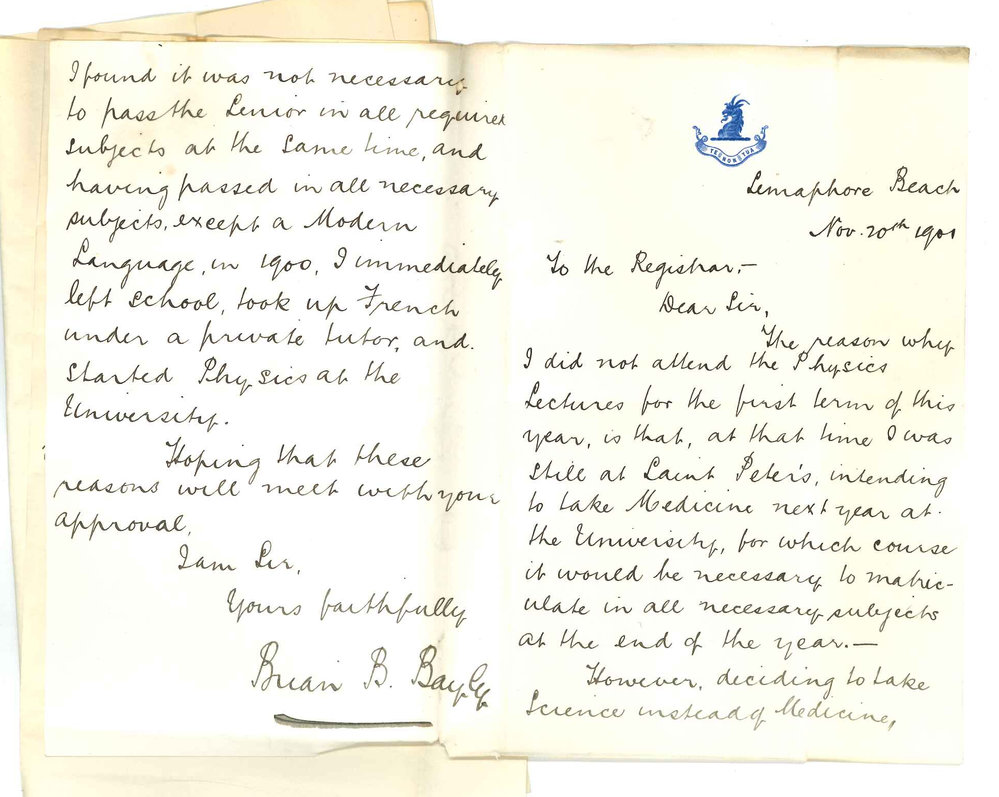 Semaphore Beach
Nov. 20th 1901
To the Registrar,—
Dear Sir,
The reason why
I did not attend the Physics
Lectures for the first term of this
year, is that, at that time I was
still at Saint Peter's, intending
to take Medicine next year at
the University, for which course
it would be necessary to matric-
ulate in all necessary subjects
at the end of the year.—
However, deciding to take
Science instead of Medicine,
I found it was not necessary
to pass the Senior in all required
subjects at the same time, and
having passed in all necessary
subjects, except a Modern
Language, in 1900, I immediately
left school, took up French
under a private tutor, and
started Physics at the
University.
Hoping that these
reasons will meet with your
approval,
I am Sir,
Yours faithfully
Brian B. Bayly